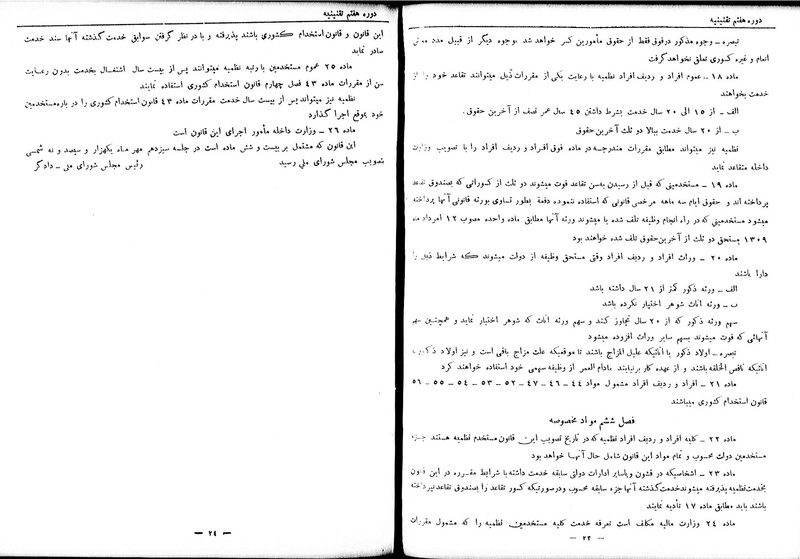 دوره هفتم تقنینیه
تبصره ــ وجوه مذکور درفوق فقط از حقوق مأمورین کسر خواهد شد بوجوه دیگر از قبیل مدد معاش
انعام و غیره کسوری تعلق نخواهد گرفت
ماده ۱۸ ــ عموم افراد و ردیف افراد نظمیه با رعایت یکی از مقررات ذیل میتوانند تقاعد خود را از
خدمت بخواهند
الف ــ از ۱۵ الی ۲۰ سال خدمت بشرط داشتن ۴۵ سال عمر نصف از آخرین حقوق.
ب ــ از ۲۰ سال خدمت ببالا دو ثلث آخرین حقوق
نظمیه نیز میتواند مطابق مقررات مندرجه در ماده فوق افراد و ردیف افراد را با تصویب وزارت
داخله متقاعد نماید
ماده ۱۹ ــ مستخدمینی که قبل از رسیدن بسن تقاعد فوت میشوند دو ثلث از کسوراتی که بصندوق تقاعد
پرداخته اند و حقوق ایام سه ماهه مرخصی قانونی که استفاده ننموده دفعة بطور تساوی بورثه قانونی آنها پرداخته
میشود مستخدمینی که در راه انجام وظیفه تلف شده یا میشوند ورثه آنها مطابق ماده واحده مصوب ۱۲ امرداد ماه
۱۳۰۹ مستحق دو ثلث از آخرین حقوق تلف شده خواهند بود
ماده ۲۰ ــ وراث افراد و ردیف افراد وقتی مستحق وظیفه از دولت میشوند که شرایط ذیل را
دارا باشند
الف ــ ورثه ذکور کمتر از ۲۱ سال داشته باشد
ب ــ ورثه اناث شوهر اختیار نکرده باشد
سهم ورثه ذکور که از ۲۰ سال تجاوز کنند و سهم ورثه اناث که شوهر اختیار نماید و همچنین سهم
آنهائی که فوت میشوند بسهم سایر وراث افزوده میشود
تبصره ــ اولاد ذکور یا اناثیکه علیل المزاج باشند تا موقعیکه علت مزاج باقی است و نیز اولاد ذکور یا
اناثیکه ناقص الخلقه باشند و از عهده کار برنیایند مادام العمر از وظیفه سهمی خود استفاده خواهند کرد
ماده ۲۱ ــ افراد و ردیف افراد مشمول مواد ۴۴ ــ ۴۶ ــ ۴۷ ــ ۵۲ ــ ۵۳ ــ ۵۴ ــ ۵۵ ــ ۵۶
قانون استخدام کشوری میباشند
فصل ششم مواد مخصوصه
ماده ۲۲ ــ کلیه افراد و ردیف افراد نظمیه که در تاریخ تصویب این قانون مستخدم نظمیه هستند جزء
مستخدمین دولت محسوب و تمام مواد این قانون شامل حال آنها خواهد بود
ماده ۲۳ ــ اشخاصیکه در قشون ویاسایر ادارات دولتی سابقه خدمت داشته با شرایط مقرره در این قانون
بخدمت نظمیه پذیرفته میشوند خدمت گذشته آنها جزء سابقه محسوب ودرصورتیکه کسور تقاعد را بصندوق تقاعد نپرداخته
باشند باید مطابق ماده ۱۷ تأدیه نمایند
ماده ۲۴ ــ وزارت مالیه مکلف است تعرفه خدمت کلیه مستخدمین نظمیه را که مشمول مقررات
ــ ۲۳ ــ
دوره هفتم تقنینیه
این قانون و قانون استخدام کشوری باشند پذیرفته و با در نظر گرفتن سوابق خدمت گذشته آنها سند خدمت
صادر نماید
ماده ۲۵ ــ عموم مستخدمین با رتبه نظمیه میتوانند پس از بیست سال اشتغال بخدمت بدون رعایت
سن از مقررات ماده ۴۳ فصل چهارم قانون استخدام کشوری استفاده نمایند
نظمیه نیز میتواند پس از بیست سال خدمت مقررات ماده ۴۳ قانون استخدام کشوری را در باره مستخدمین
خود بموقع اجرا گذارد
ماده ۲۶ ــ وزارت داخله مأمور اجرای این قانون است
این قانون که مشتمل بر بیست و شش ماده است در جلسه سیزدهم مهر ماه یکهزار و سیصد و نه شمسی
بتصویب مجلس شورای ملی رسید رئیس مجلس شورای ملی ــ دادگر
ــ ۲۴ ــ